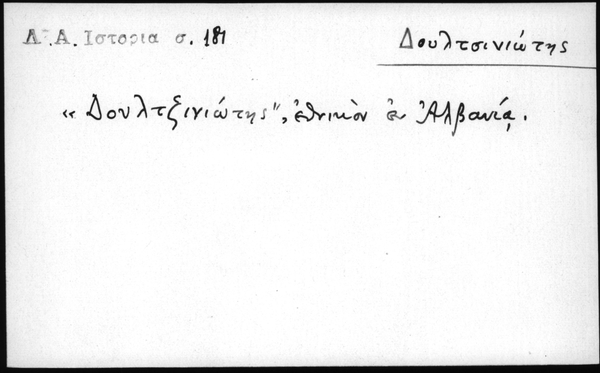 Λ.Α. Ιστορια σ. 181
Δουλτσινιώτης
« Δουλτζινιώτης", ἐθνικὸν ἐν Ἀλβανίᾳ.